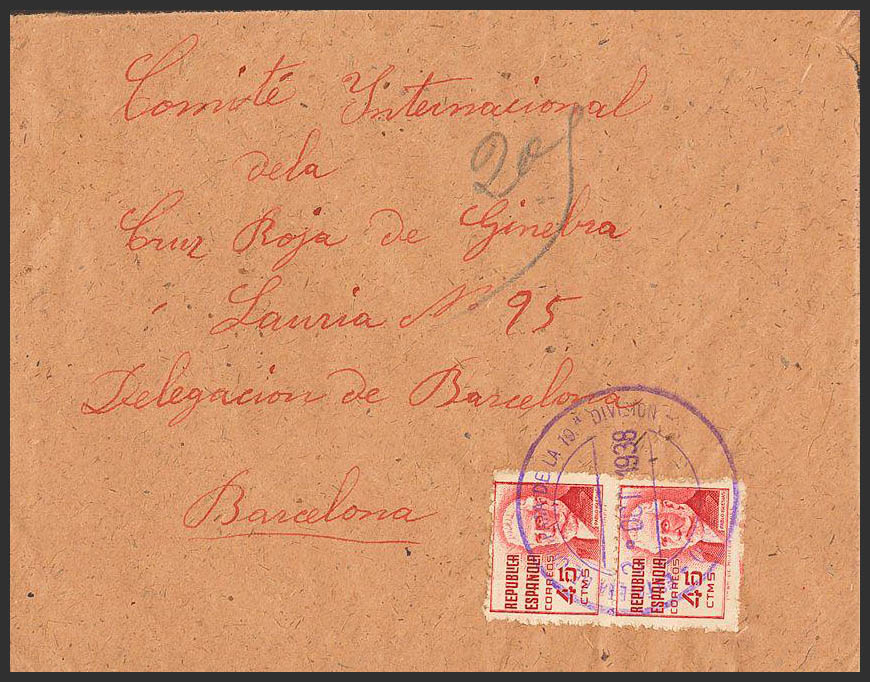 Comité Internacional
20
dela
Cruz Roja de Ginebra
Lauria Nº 95
Delegacion de Barcelona
Barcelona
DE LA 19.ª DIVISION
1938
REPUBLICA
ESPAÑOLA
CORREOS
45
CTMS
PABLO IGLESIAS
REPUBLICA
ESPAÑOLA
CORREOS
45
CTMS
PABLO IGLESIAS